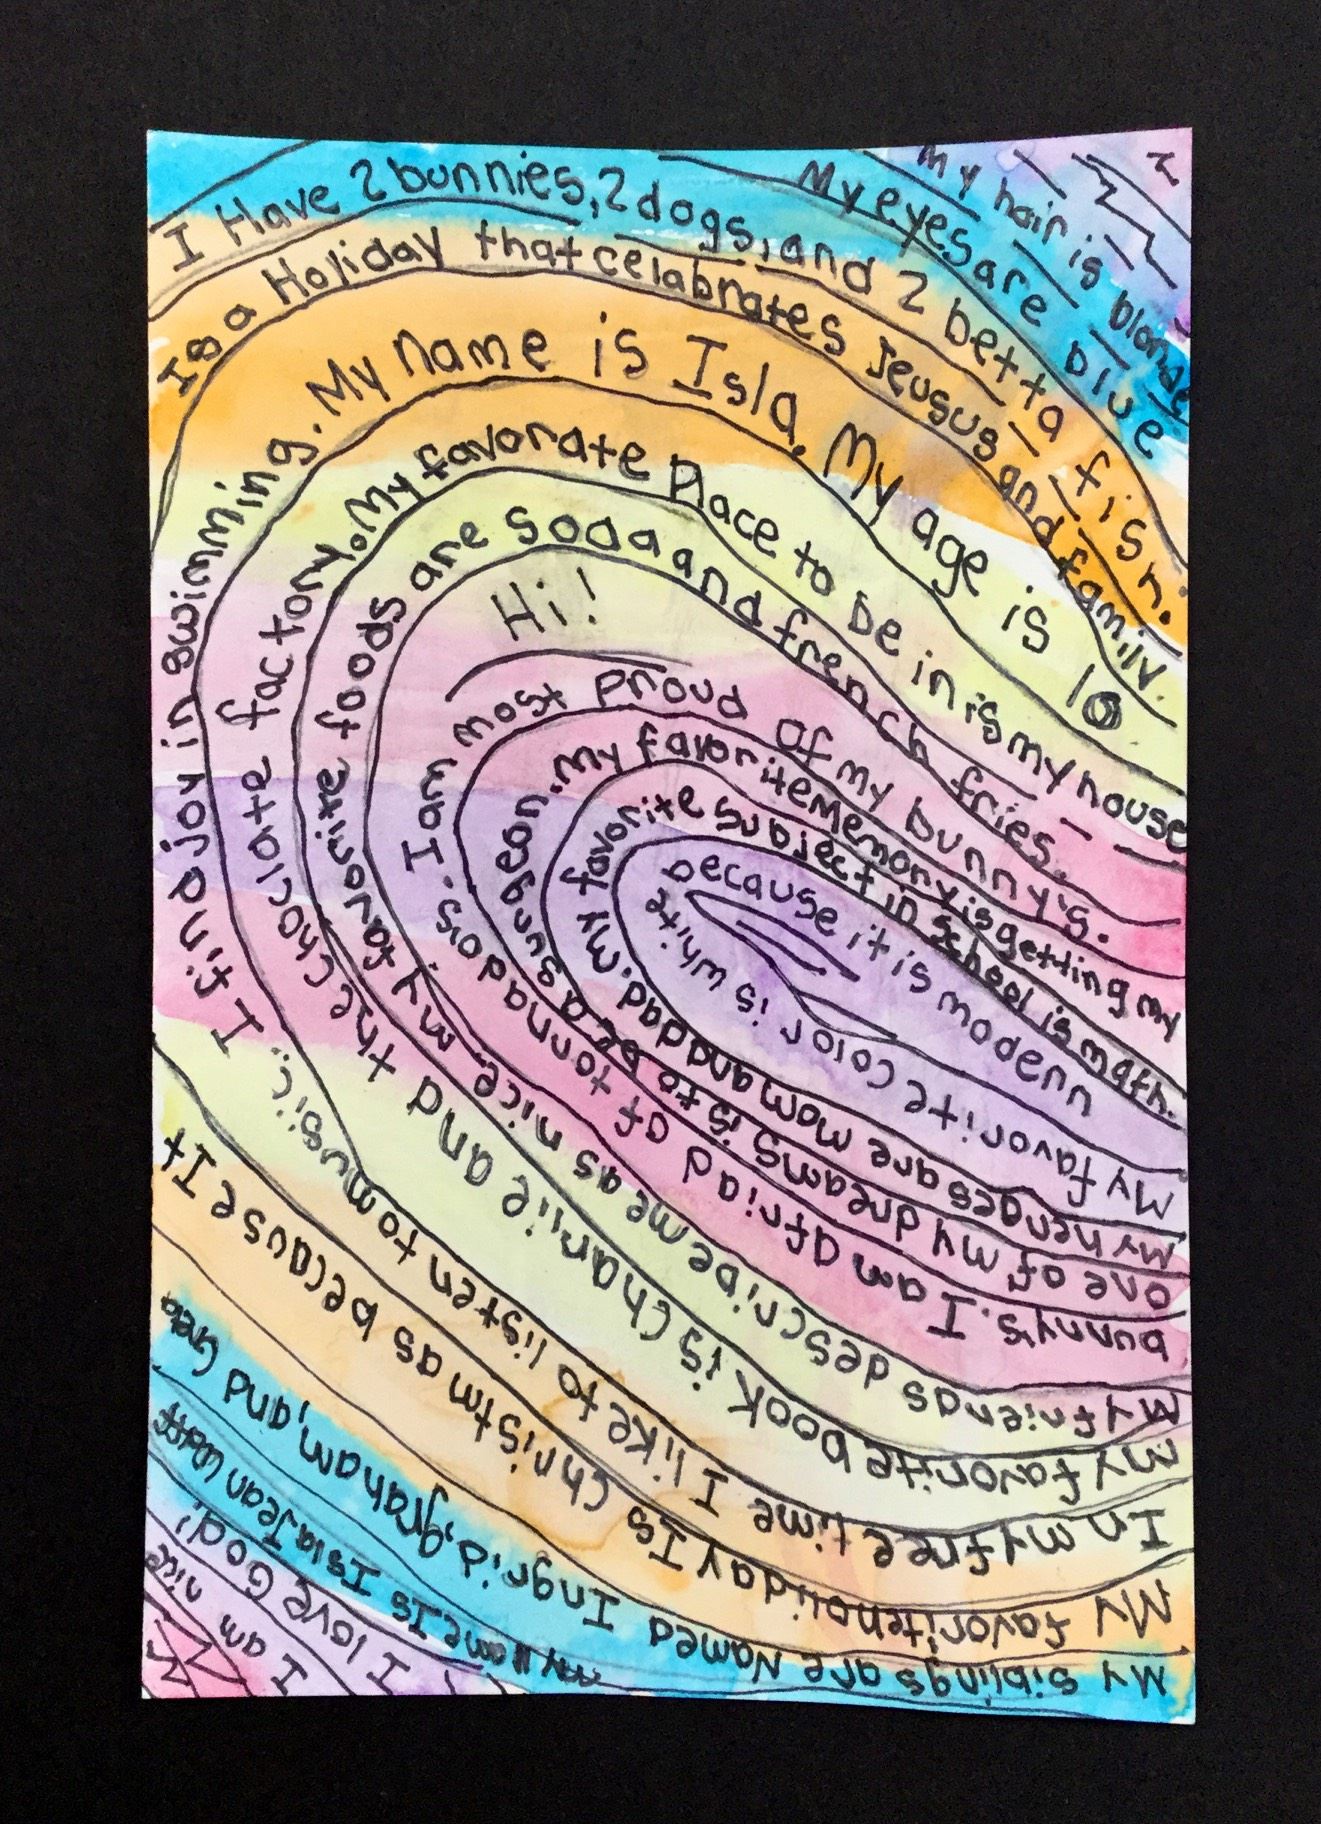 My hair is blonde
My eyes are blue
I Have 2 bunnies, 2 dogs, and 2 betta fish.
My favorite holiday Is Christmas because It
Is a Holiday that celabrates Jeusus and family.
In my free time I like to listen to music. I find joy in swimming. My name is Isla, My age is 10
my favorite book is Charlie and the Chocolate factory. My favorate Place to be in is my house
My friends as describe me as nice. my favorite foods are soda and french fries.
Hi!
bunny's. I am afriad of tornados. I am most proud of my bunny's.
one of my dreams is to be a surgeon. My favorite Memory is getting my
My heroes are mom and dad. My favorite subject in school is math.
My favorite color is white
because it is modern
My siblings are Named Ingrid, graham, and Greta
my name Is Isla Jean
I love God!
I am nice